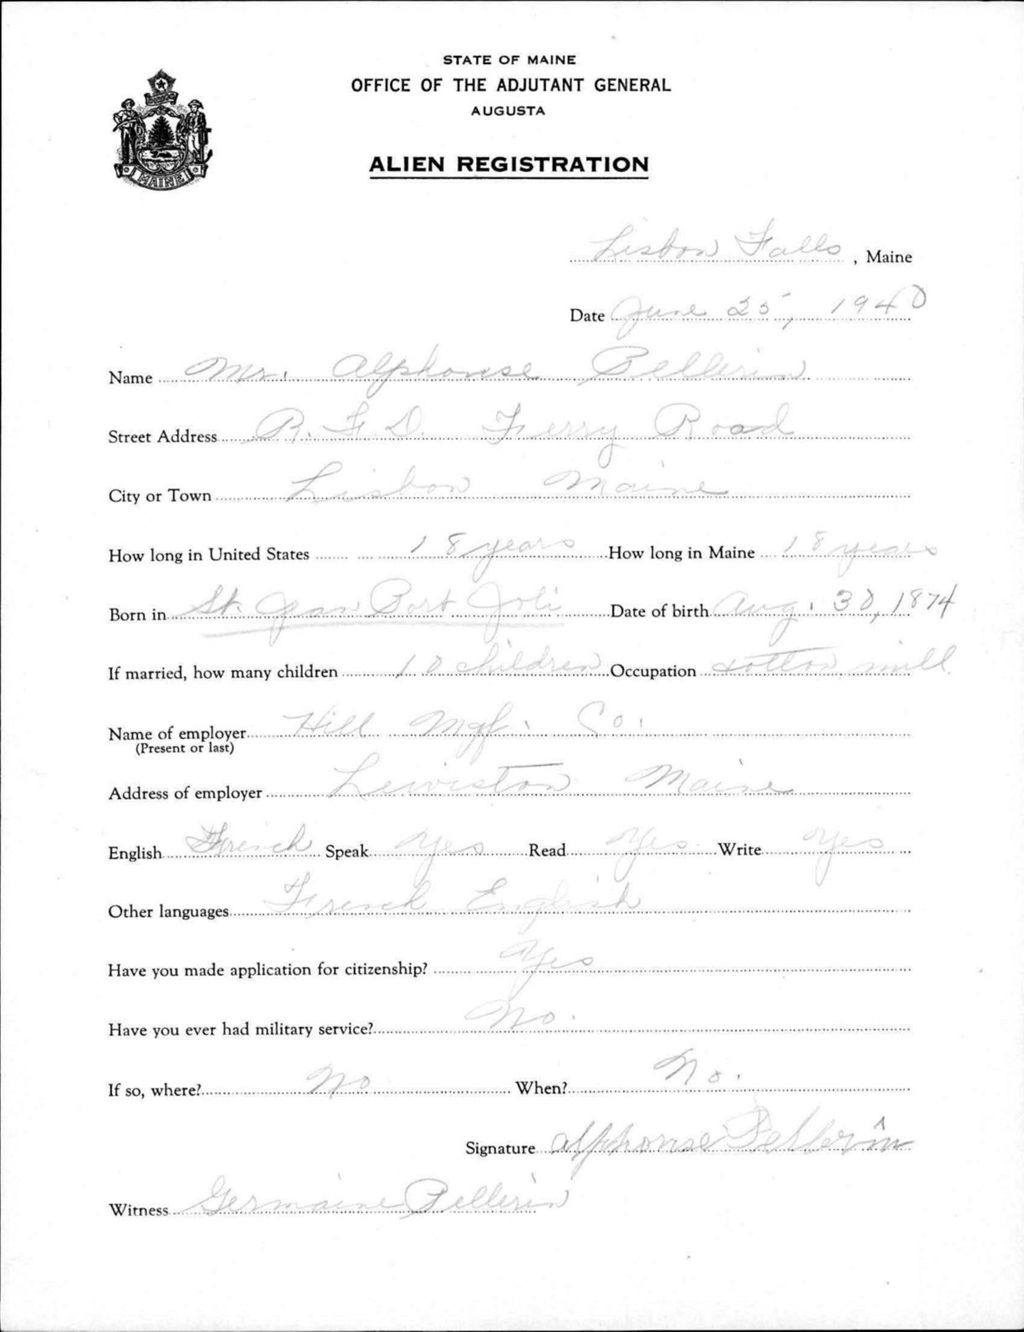 STATE OF MAINE
OFFICE OF THE ADJUTANT GENERAL
AUGUSTA
MAINE
ALIEN REGISTRATION
Lisbon Falls, Maine
Date June 25, 1940
Name Mr. Alphonse Pellerin
Street Address R. F. D. Ferry Road
City or Town Lisbon Maine
How long in United States 18 years How long in Maine 18 years
Born in St. Jean Port Joli Date of birth Aug. 30, 1874
If married, how many children 10 children Occupation cotton mill
Name of employer Hill Mgf. Co.
(Present or last)
Address of employer Lewiston Maine
English French Speak Yes Read Yes Write Yes
Other languages French English
Have you made application for citizenship? Yes
Have you ever had military service? No.
If so, where? No When? No.
Signature Alphonse Pellerin
Witness Germaine Pellerin